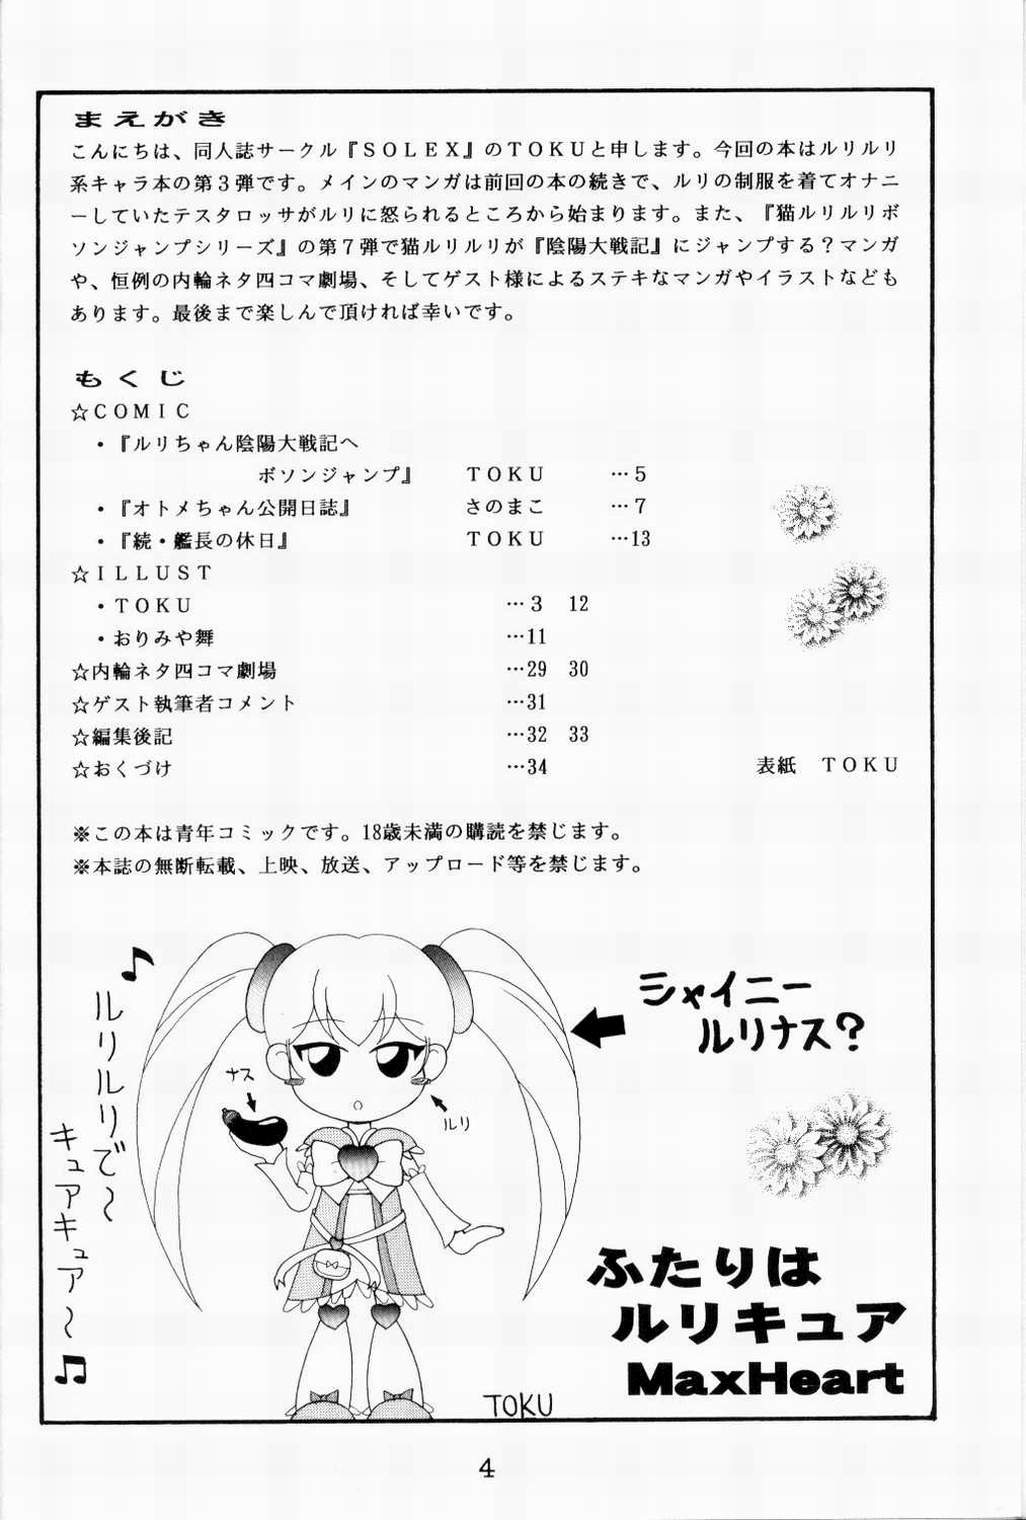 まえがき
こんにちは、同人誌サークル『ＳＯＬＥＸ』のＴＯＫＵと申します。今回の本はルリルリ
系キャラ本の第３弾です。メインのマンガは前回の本の続きで、ルリの制服を着てオナニ
ーしていたテスタロッサがルリに怒られるところから始まります。また、『猫ルリルリボ
ソンジャンプシリーズ』の第７弾で猫ルリルリが『陰陽大戦記』にジャンプする？マンガ
や、恒例の内輪ネタ四コマ劇場、そしてゲスト様によるステキなマンガやイラストなども
あります。最後まで楽しんで頂ければ幸いです。
もくじ
☆ＣＯＭＩＣ
・『ルリちゃん陰陽大戦記へ
ボソンジャンプ』　ＴＯＫＵ　…５
・『オトメちゃん公開日誌』　さのまこ　…７
・『続・艦長の休日』　ＴＯＫＵ　…13
☆ＩＬＬＵＳＴ
・ＴＯＫＵ　…３　12
・おりみや舞　…11
☆内輪ネタ四コマ劇場　…29　30
☆ゲスト執筆者コメント　…31
☆編集後記　…32　33
☆おくづけ　…34　表紙　ＴＯＫＵ
※この本は青年コミックです。18歳未満の購読を禁じます。
※本誌の無断転載、上映、放送、アップロード等を禁じます。
シャイニー
ルリナス？
ナス
ルリ
♪ルリルリで〜
キュアキュア〜♫
ふたりは
ルリキュア
MaxHeart
TOKU
4